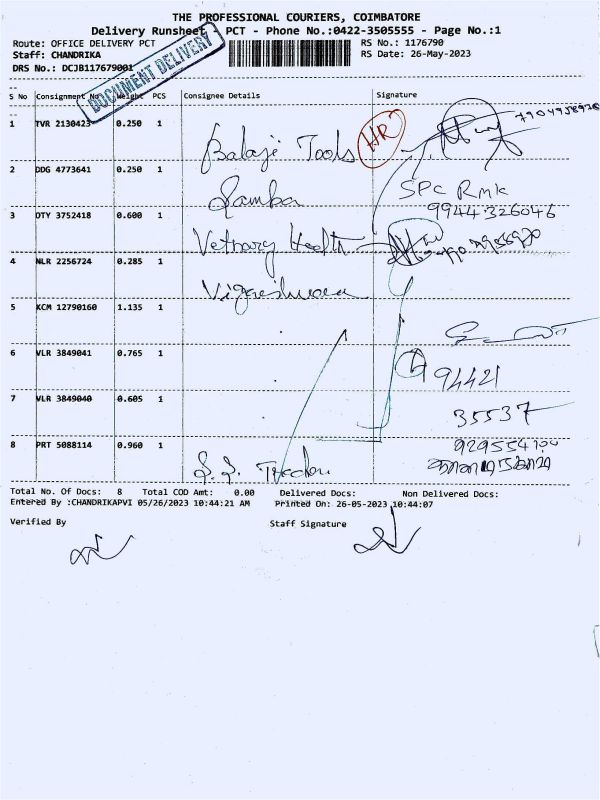 THE PROFESSIONAL COURIERS, COIMBATORE
Delivery Runsheet PCT - Phone No.:0422-3505555 - Page No.:1
Route: OFFICE DELIVERY PCT
RS No.: 1176790
Staff: CHANDRIKA
RS Date: 26-May-2023
DRS No.: DCJB117679001
DOCUMENT DELIVERY
S No Consignment No Weight PCS Consignee Details Signature
1 TVR 2130423 0.250 1 Balaji Tools HR
2 DDG 4773641 0.250 1 Ramba SPC RMK
9944326046
3 OTY 3752418 0.600 1 Vetnary Health
4 NLR 2256724 0.285 1 Vigneshwara
5 KCM 12790160 1.135 1
6 VLR 3849041 0.765 1 94421
7 VLR 3849040 0.605 1 35537
8 PRT 5088114 0.960 1 S. S. Traders
Total No. Of Docs: 8 Total COD Amt: 0.00 Delivered Docs: Non Delivered Docs:
Entered By :CHANDRIKAPVI 05/26/2023 10:44:21 AM Printed On: 26-05-2023 10:44:07
Verified By Staff Signature